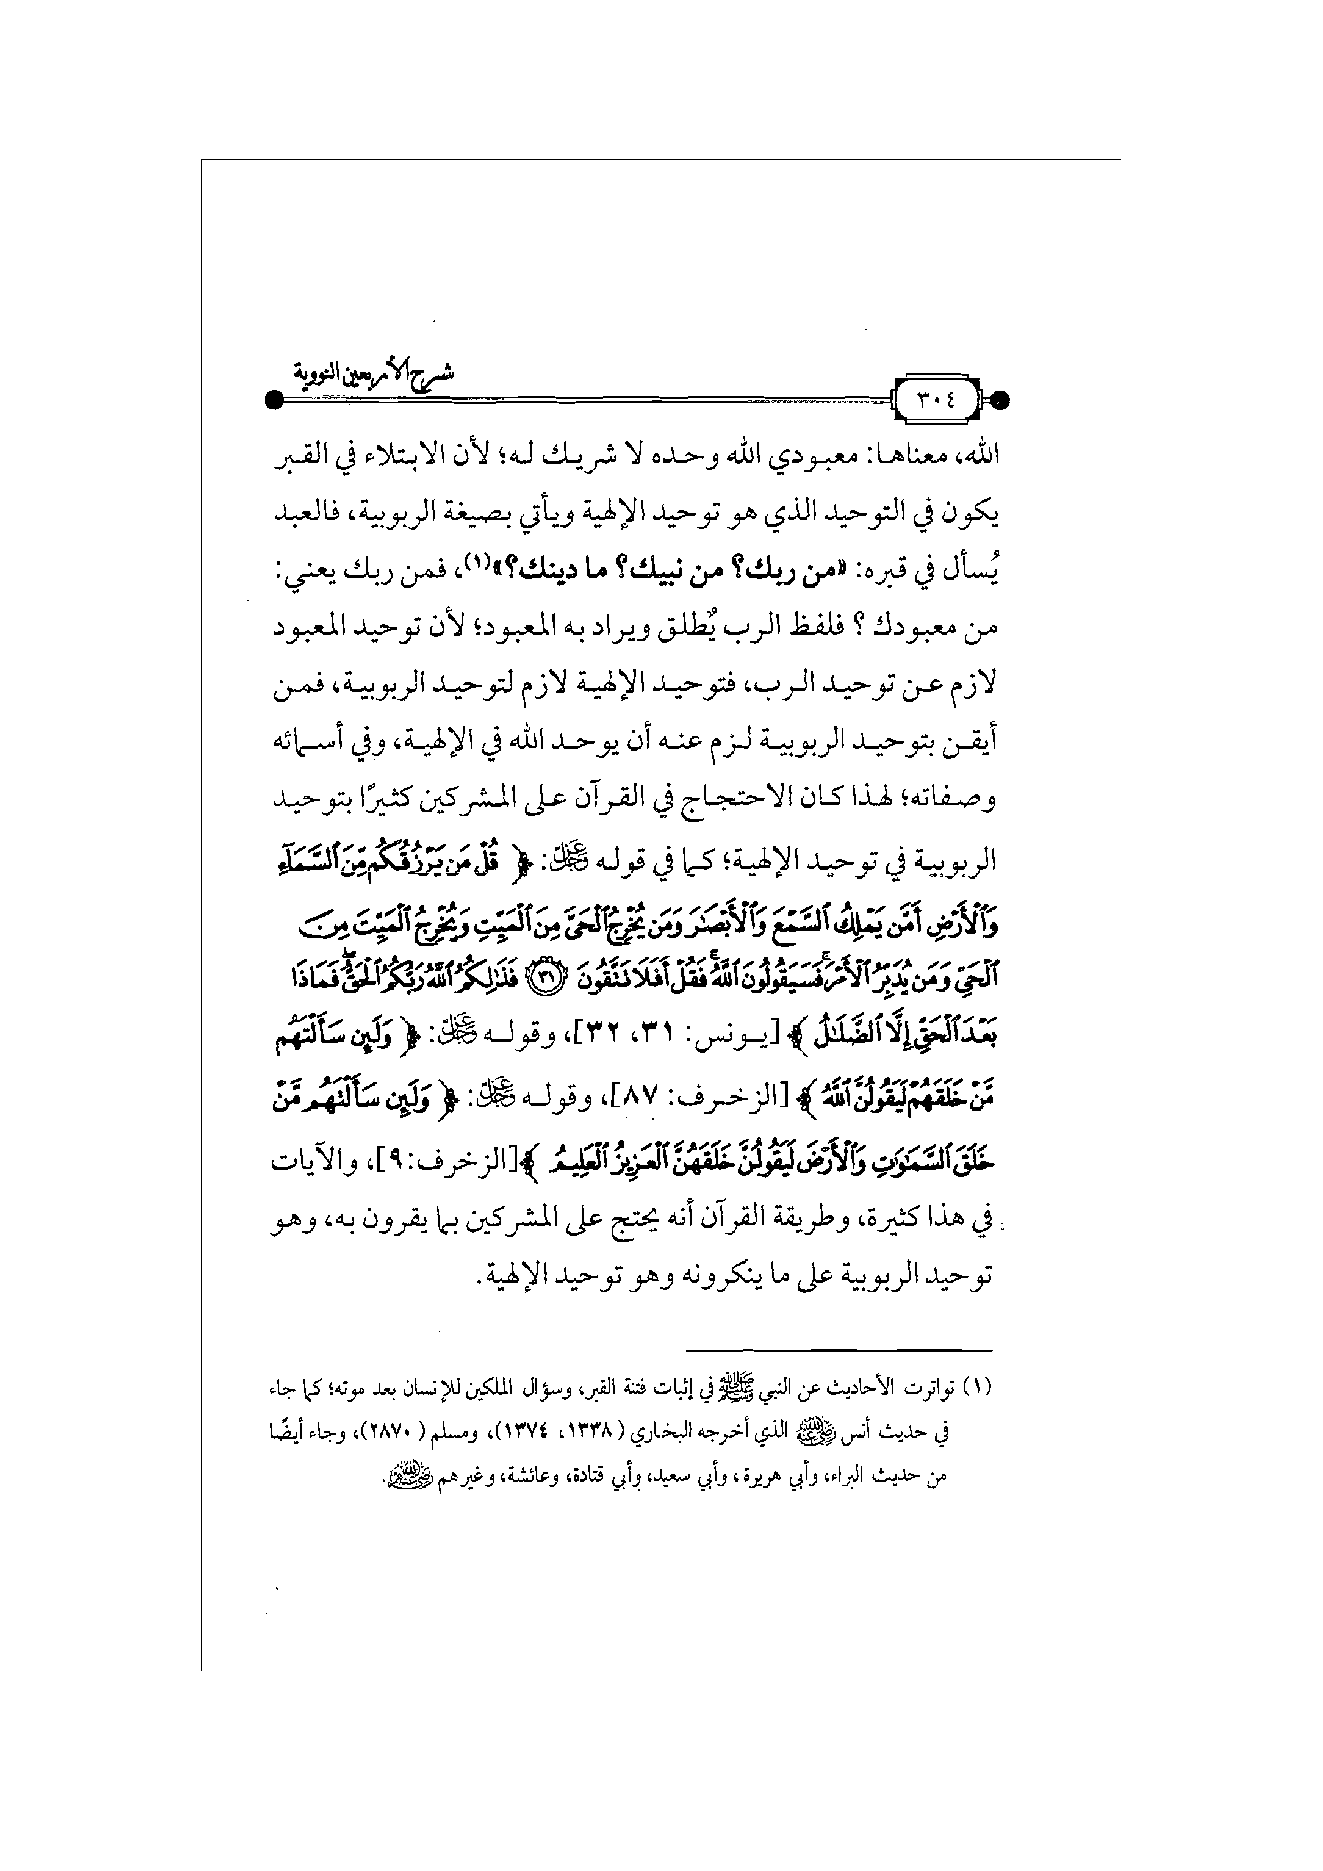 شرح الأربعين النووية
٣٠٤
الله، معناها: معبودي الله وحده لا شريك له؛ لأن الابتلاء في القبر
يكون في التوحيد الذي هو توحيد الإلهية ويأتي بصيغة الربوبية، فالعبد
يُسأل في قبره: «من ربك؟ من نبيك؟ ما دينك؟»(١)، فمن ربك يعني:
من معبودك ؟ فلفظ الرب يُطلق ويراد به المعبود؛ لأن توحيد المعبود
لازم عن توحيد الرب، فتوحيد الإلهية لازم لتوحيد الربوبية، فمن
أيقن بتوحيد الربوبية لزم عنه أن يوحد الله في الإلهية، وفي أسمائه
وصفاته؛ لهذا كان الاحتجاج في القرآن على المشركين كثيرًا بتوحيد
الربوبية في توحيد الإلهية؛ كما في قوله عز وجل: ﴿ قُلْ مَن يَرْزُقُكُم مِّنَ ٱلسَّمَآءِ
وَٱلْأَرْضِ أَمَّن يَمْلِكُ ٱلسَّمْعَ وَٱلْأَبْصَٰرَ وَمَن يُخْرِجُ ٱلْحَىَّ مِنَ ٱلْمَيِّتِ وَيُخْرِجُ ٱلْمَيِّتَ مِنَ
ٱلْحَىِّ وَمَن يُدَبِّرُ ٱلْأَمْرَ ۚ فَسَيَقُولُونَ ٱللَّهُ ۚ فَقُلْ أَفَلَا تَتَّقُونَ ﴿٣١﴾ فَذَٰلِكُمُ ٱللَّهُ رَبُّكُمُ ٱلْحَقُّ ۖ فَمَاذَا
بَعْدَ ٱلْحَقِّ إِلَّا ٱلضَّلَٰلُ ﴾ [يونس: ٣١، ٣٢]، وقوله عز وجل: ﴿ وَلَئِن سَأَلْتَهُم
مَّنْ خَلَقَهُمْ لَيَقُولُنَّ ٱللَّهُ ﴾ [الزخرف: ٨٧]، وقوله عز وجل: ﴿ وَلَئِن سَأَلْتَهُم مَّنْ
خَلَقَ ٱلسَّمَٰوَٰتِ وَٱلْأَرْضَ لَيَقُولُنَّ خَلَقَهُنَّ ٱلْعَزِيزُ ٱلْعَلِيمُ ﴾ [الزخرف: ٩]، والآيات
في هذا كثيرة، وطريقة القرآن أنه يحتج على المشركين بما يقرون به، وهو
توحيد الربوبية على ما ينكرونه وهو توحيد الإلهية.
(١) تواترت الأحاديث عن النبي ﷺ في إثبات فتنة القبر، وسؤال الملكين للإنسان بعد موته؛ كما جاء
في حديث أنس رضي الله عنه الذي أخرجه البخاري (١٣٣٨، ١٣٧٤)، ومسلم (٢٨٧٠)، وجاء أيضًا
من حديث البراء، وأبي هريرة، وأبي سعيد، وأبي قتادة، وعائشة، وغيرهم رضي الله عنهم.